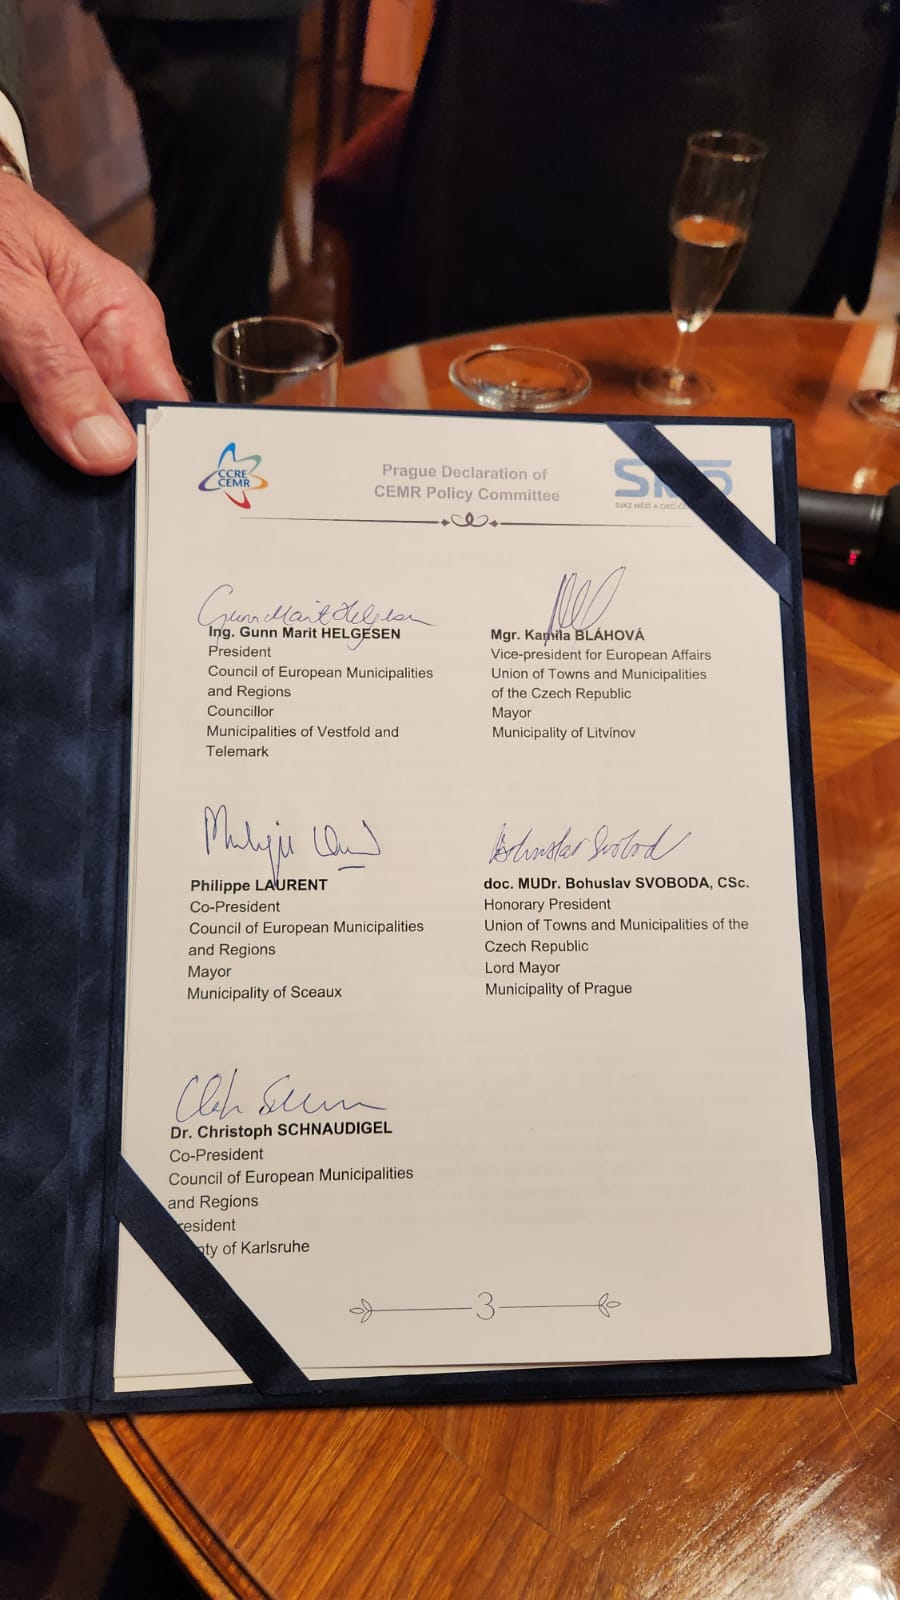 CCRE
CEMR
Prague Declaration of
CEMR Policy Committee
SVAZ MĚST A OBCÍ
Gunn Marit Helgesen
Ing. Gunn Marit HELGESEN
President
Council of European Municipalities
and Regions
Councillor
Municipalities of Vestfold and
Telemark
Mgr. Kamila BLÁHOVÁ
Vice-president for European Affairs
Union of Towns and Municipalities
of the Czech Republic
Mayor
Municipality of Litvínov
Philippe LAURENT
Co-President
Council of European Municipalities
and Regions
Mayor
Municipality of Sceaux
Bohuslav Svoboda
doc. MUDr. Bohuslav SVOBODA, CSc.
Honorary President
Union of Towns and Municipalities of the
Czech Republic
Lord Mayor
Municipality of Prague
Dr. Christoph SCHNAUDIGEL
Co-President
Council of European Municipalities
and Regions
resident
nty of Karlsruhe
3